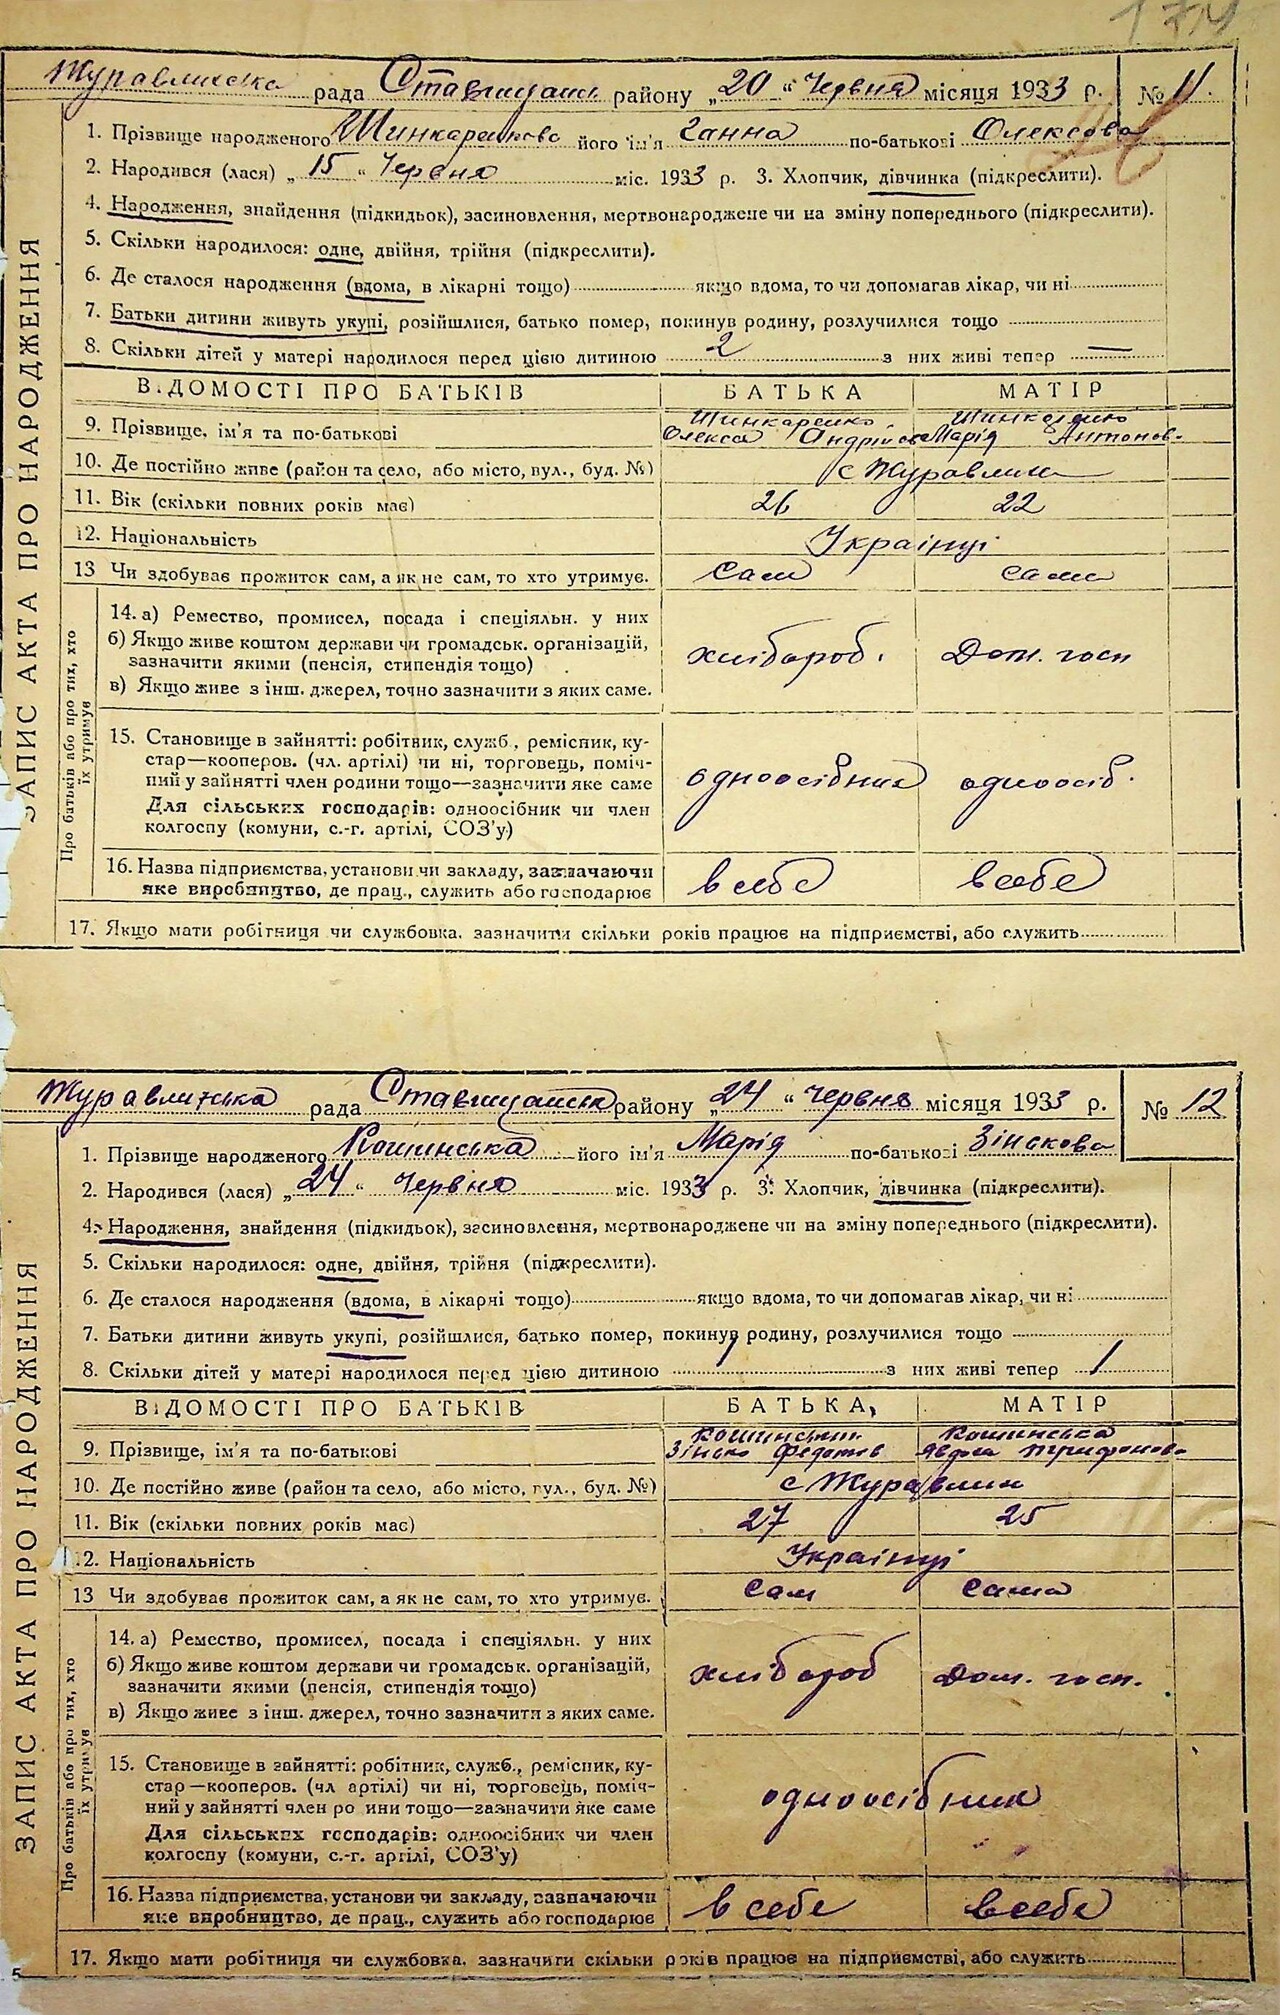 174
Журавлинська рада Ставищанськ району „20" Червня місяця 1933 р. № 11.
1. Прізвище народженого Шинкаренкова його ім'я Ганна по-батькові Олексова
2. Народився (лася) „15" Червня міс. 1933 р. 3. Хлопчик, дівчинка (підкреслити).
4. Народження, знайдення (підкидьок), засиновлення, мертвонароджене чи на зміну попереднього (підкреслити).
5. Скільки народилося: одне, двійня, трійня (підкреслити).
6. Де сталося народження (вдома, в лікарні тощо) якщо вдома, то чи допомагав лікар, чи ні
7. Батьки дитини живуть укупі, розійшлися, батько помер, покинув родину, розлучилися тощо
8. Скільки дітей у матері народилося перед цією дитиною 2 з них живі тепер —
ВІДОМОСТІ ПРО БАТЬКІВ БАТЬКА МАТІР
Шинкаренко Шинкаренко
9. Прізвище, ім'я та по-батькові Олекса Андрійов Марія Антонов-
10. Де постійно живе (район та село, або місто, вул., буд. №) с Журавлиха
11. Вік (скільки повних років має) 26 22
12. Національність Українці
13 Чи здобуває прожиток сам, а як не сам, то хто утримує. Сам сама
14. а) Ремество, промисел, посада і спеціяльн. у них
б) Якщо живе коштом держави чи громадськ. організацій,
зазначити якими (пенсія, стипендія тощо) хлібороб. Дом. госп
в) Якщо живе з інш. джерел, точно зазначити з яких саме.
15. Становище в зайнятті: робітник, служб., ремісник, ку-
стар—кооперов. (чл. артілі) чи ні, торговець, поміч-
ний у зайнятті член родини тощо—зазначити яке саме одноосібник одноосіб.
Для сільських господарів: одноосібник чи член
колгоспу (комуни, с.-г. артілі, СОЗ'у)
16. Назва підприємства, установи чи закладу, зазначаючи
яке виробництво, де прац., служить або господарює в себе в себе
17. Якщо мати робітниця чи службовка, зазначити скільки років працює на підприємстві, або служить
ЗАПИС АКТА ПРО НАРОДЖЕННЯ
Про батьків або про тих, хто
їх утримує
Журавлинська рада Ставищанськ району „24" червня місяця 1933 р. № 12
1. Прізвище народженого Кошинська його ім'я Марія по-батькові Зінькова
2. Народився (лася) „24" Червня міс. 1933 р. 3. Хлопчик, дівчинка (підкреслити).
4. Народження, знайдення (підкидьок), засиновлення, мертвонароджене чи на зміну попереднього (підкреслити).
5. Скільки народилося: одне, двійня, трійня (підкреслити).
6. Де сталося народження (вдома, в лікарні тощо) якщо вдома, то чи допомагав лікар, чи ні
7. Батьки дитини живуть укупі, розійшлися, батько помер, покинув родину, розлучилися тощо
8. Скільки дітей у матері народилося перед цією дитиною 1 з них живі тепер 1
ВІДОМОСТІ ПРО БАТЬКІВ БАТЬКА, МАТІР
Кошинський Кошинська
9. Прізвище, ім'я та по-батькові Зінько Федотов Явдоха Трифонов-
10. Де постійно живе (район та село, або місто, вул., буд. №) с Журавлиха
11. Вік (скільки повних років має) 27 25
12. Національність Українці
13 Чи здобуває прожиток сам, а як не сам, то хто утримує. Сам Сама
14. а) Ремество, промисел, посада і спеціяльн. у них
б) Якщо живе коштом держави чи громадськ. організацій,
зазначити якими (пенсія, стипендія тощо) хлібороб Дом. госп.
в) Якщо живе з інш. джерел, точно зазначити з яких саме.
15. Становище в зайнятті: робітник, служб., ремісник, ку-
стар—кооперов. (чл артілі) чи ні, торговець, поміч-
ний у зайнятті член ро ини тощо—зазначити яке саме одноосібник
Для сільських господарів: одноосібник чи член
колгоспу (комуни, с.-г. артілі, СОЗ'у)
16. Назва підприємства, установи чи закладу, зазначаючи
яке виробництво, де прац., служить або господарює в себе в себе
17. Якщо мати робітниця чи службовка, зазначити скільки років працює на підприємстві, або служить
ЗАПИС АКТА ПРО НАРОДЖЕННЯ
Про батьків або про тих, хто
їх утримує
5